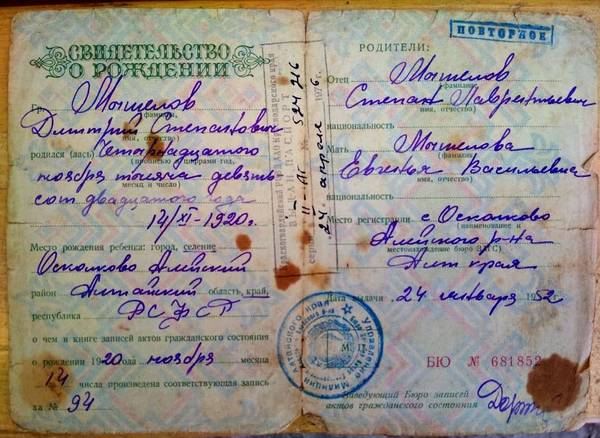 СВИДЕТЕЛЬСТВО
О РОЖДЕНИИ
Гр. Мышелов
(фамилия,
Дмитрий Степанович
имя, отчество)
родился (лась) Четырнадцатого
(прописью и цифрами год,
ноября тысяча девять-
месяц и число)
сот двадцатого года
14/XI-1920г.
Место рождения ребенка: город, селение
Осколково Алейский
район Алтайский область, край,
республика РСФСР
о чем в книге записей актов гражданского состояния
о рождении 1920 года ноября месяца
14 числа произведена соответствующая запись
за № 94
ВЫДАН ПАСПОРТ
II-ЛГ № 524716
24 апреля 1976 г.
ПОВТОРНОЕ
РОДИТЕЛИ:
Отец Мышелов
(фамилия,
Степан Лаврентьевич
имя, отчество)
национальность
Мать Мышелова
(фамилия,
Евгенья Васильевна
имя, отчество)
национальность
Место регистрации с Осколково
(наименование и
Алейского р-на
местонахождение бюро ЗАГС)
Алт края
Дата выдачи 24 января 1952 г.
М. П.
Управление Милиции Алтайского края
БЮ № 681852
Заведующий Бюро записей
актов гражданского состояния